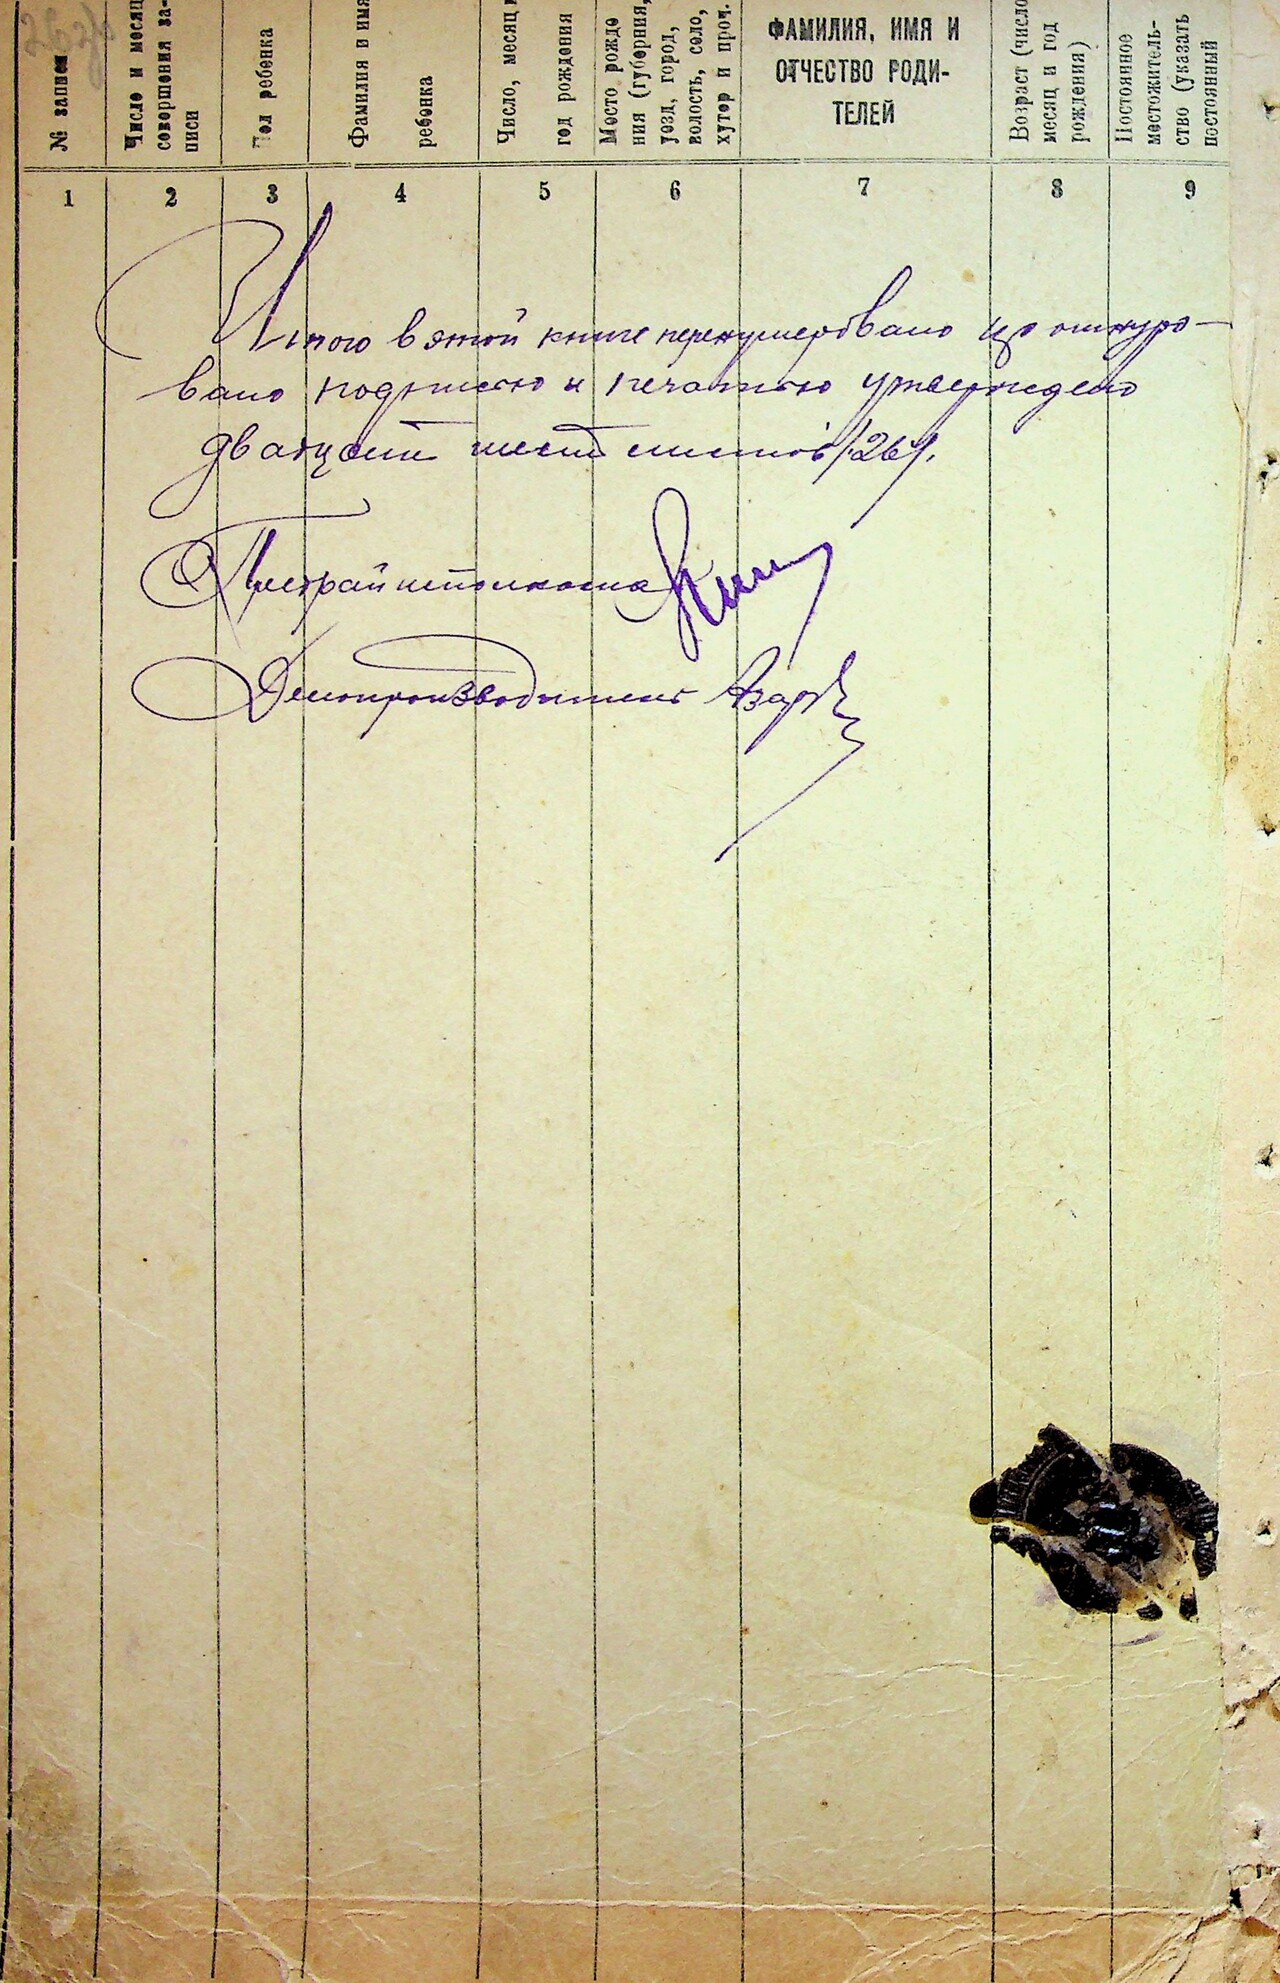 № записи
Число и месяц
совершения за-
писи
Пол ребенка
Фамилия и имя
ребенка
Число, месяц и
год рождения
Место рожде
ния (губерния,
уезд, город,
волость, село,
хутор и проч.
ФАМИЛИЯ, ИМЯ И
ОТЧЕСТВО РОДИ-
ТЕЛЕЙ
Возраст (число
месяц и год
рождения)
Постоянное
местожитель-
ство (указать
постоянный
1 2 3 4 5 6 7 8 9
Итого в этой книге перенумеровано прошнуро-
вано подписью и печатью утверждено
двадцать шесть листов /26/.
Предрайисполкома
Делопроизводитель